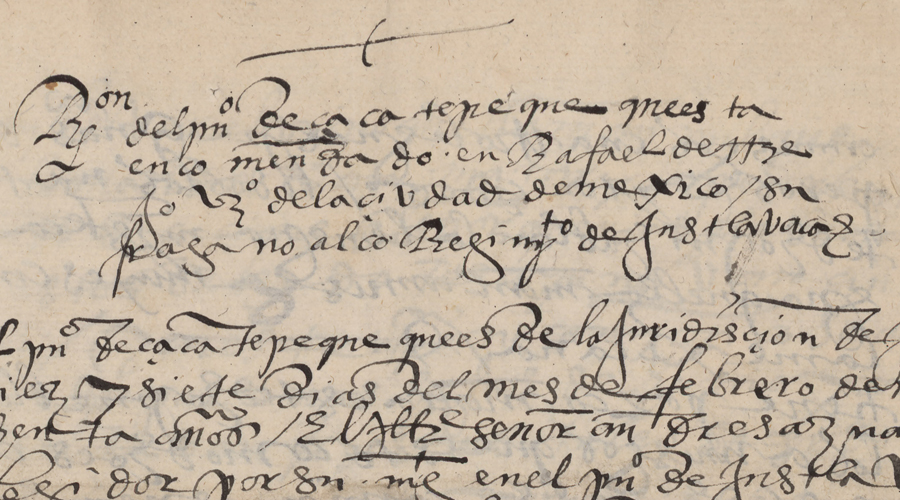 Ron del puo de çacatepeque que es ta
encomendado en Rafael de trexo
vzo de la çiudad de mexico / su
fragano al co Regimyto de Justlavaca
l puo de çacatepeque que es de la Juridisçion de
iez y siete dias del mes de febrero de
senta años / El yltre señor an dres aznar
Regidor por su mt en el puo de Justla